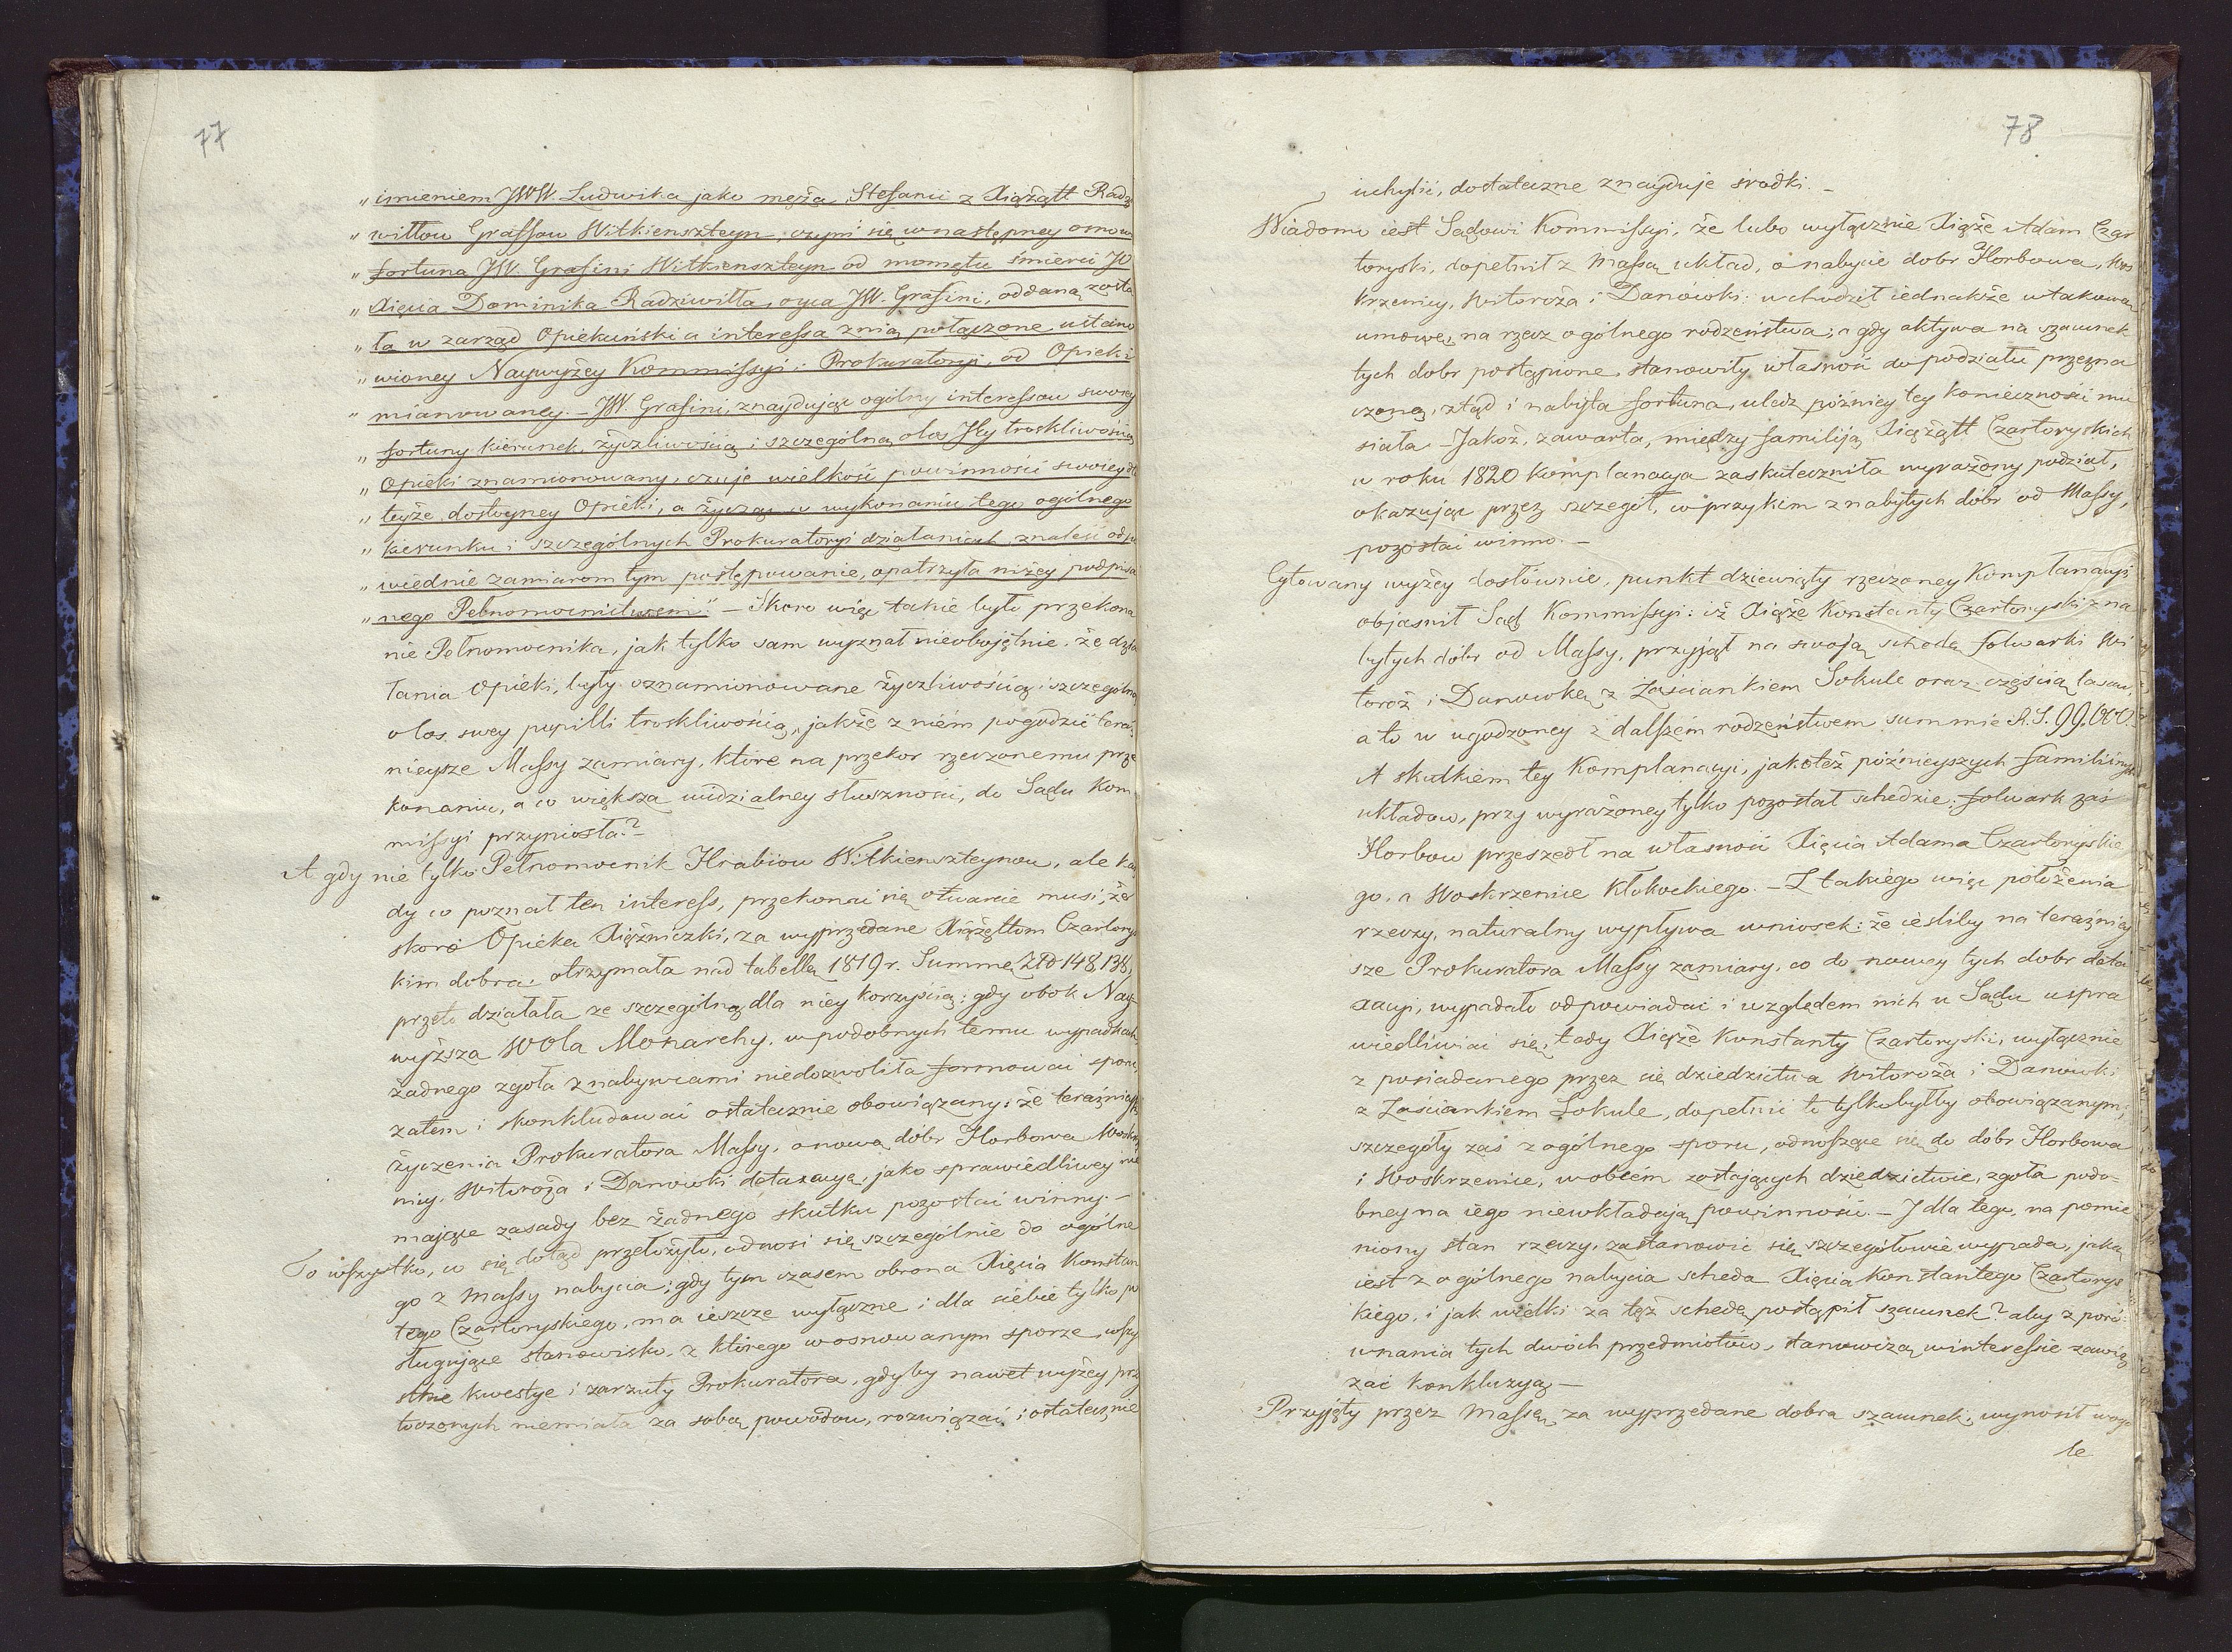 77
„ imieniem JWW. Ludwika jako męża, Stefanii z Xiążątt Radzi
„ wiłłow Graffow Witkienszteyn, czyni się w następney osnow
„ fortuna JW. Grafini Witkienszteyn od momętu śmierci JO
„ Xięcia Dominika Radziwiłła, oyca JW. Grafini, oddaną zosta
„ ła w zarząd Opiekuński a interessa z nią połączone ustano
„ wioney Naywyżey Kommissyi i Prokuratoryi, od Opieki
„ mianowaney. — JW. Grafini, znaydując ogólny interessow swoiey
„ fortuny kierunek, życzliwością i szczególną o los Jey troskliwością
„ Opieki znamionowany, czuje wielkość powinności swoiey dla
„ teyże dostoyney Opieki, a życząc w wykonaniu tego ogólnego
„ kierunku i szczególnych Prokuratoryi działaniach, znaleść odpo
„ wiednie zamiarom tym postępowanie, opatrzyła niżey podpisa
„ nego Pełnomocnictwem." — Skoro więc takie było przekona
nie Pełnomocnika, jak tylko sam wyznał nieobojętnie, że dzia
łania Opieki, były oznamionowane życzliwością i szczególną
o los swey pupilli troskliwością, jakże z niém pogodzić teraź
nieysze Massy zamiary, które na przekor rzeczonemu prze
konaniu, a co większa widzialney słuszności, do Sądu Kom
missyi przyniosła? —
A gdy nie tylko Pełnomocnik Hrabiow Witkienszteynow, ale każ
dy co poznał ten interess, przekonać się otwarcie musi, że
skoro Opieka Xiężniczki, za wyprzedane Xiążęttom Czartorys
kim dobra, otrzymała nad tabellę 1819 r. Summę ZłP 148,138,
przeto działała ze szczególną dla niey korzyścią; gdy obok Nay
wyższa Wola Monarchy, w podobnych temu wypadkach,
żadnego zgoła z nabywcami niedozwoliła formować sporu,
zatem i skonkludować ostatecznie obowiązany: że teraźnieysze
życzenia Prokuratora Massy, o nową dóbr Horbowa Woskrze
nicy, Witoroża i Danowki detaxacyą, jako sprawiedliwey nie
mające zasady bez żadnego skutku pozostać winny. —
To wszystko, co się dotąd przełożyło, odnosi się szczególnie do ogólne
go z Massy nabycia; gdy tym czasem obrona Xięcia Konstan
tego Czartoryskiego, ma ieszcze wyłączne i dla siebie tylko po
sługujące stanowisko, z którego w osnowanym sporze, wszy
stkie kwestye i zarzuty Prokuratora, gdyby nawet wyżey przy
toczonych niemiała za sobą powodow, rozwiązać i ostatecznie
78
uchylić, dostateczne znayduje srodki. —
Wiadomo iest Sądowi Kommissyi, że lubo wyłącznie Xiąże Adam Czar
toryski, dopełnił z Massą układ, o nabycie dobr Horbowa, Wos
krzenicy, Witoroża i Danówki: wchodził iednakże w takową
umowę, na rzecz ogólnego rodzeństwa; a gdy aktywa na szacunek
tych dobr postąpione, stanowiły własność do podziału przezna
czoną, ztąd i nabyta fortuna, uledz później tey konieczności mu
siała. — Jakoż, zawarta, między familiją Xiążątt Czartoryskich
w roku 1820 komplanacya zaskuteczniła wyrażony podział,
okazując przez szczegół, co przy kim z nabytych dóbr od Massy,
pozostać winno. —
Cytowany wyżey dosłównie, punkt dziewiąty rzeczoney Komplanacyi
objasnił Sąd Kommissyi: iż Xiąże Konstanty Czartoryski z na
bytych dóbr od Massy, przyjął na swoją schedę folwarki Wi
toroż i Danowkę, z Zaściankiem Sokule oraz częścią lasow,
a to w ugodzoney z dalszém rodzeństwem summie R. S. 99,000.
A skutkiem tey Komplanacyi, jakoteż późnieyszych familiinych
układow, przy wyrażoney tylko pozostał schedzie; folwark zaś
Horbow przeszedł na własność Xięcia Adama Czartoryskie
go, a Woskrzenice Kłokockiego. — Z takiégo więc położenia
rzeczy, naturalny wypływa wniosek: że ieśliby na teraźniey
sze Prokuratora Massy zamiary, co do nowey tych dobr deta
xacyi, wypadało odpowiadać i względem nich u Sądu uspra
wiedliwiać się, tedy Xiąże Konstanty Czartoryski, wyłącznie
z posiadanego przez się dziedzictwa Witoroża i Danówki
z Zaściankiem Sokule, dopełnić to tylko byłby obowiązanym;
szczegóły zaś z ogólnego sporu, odnoszące się do dóbr Horbowa
i Woskrzenic, w obcém zostających dziedzictwie, zgoła podo-
bney na iego niewkładają powinności. — I dla tego, na pomie
niony stan rzeczy, zastanowić się szczegółowie wypada, jaką
iest z ogólnego nabycia scheda Xięcia Konstantego Czartorys
kiego, i jak wielki za tęż schedę postąpił szacunek? aby z poró
wnania tych dwóch przedmiotow, stanowczą w interessie zawią
zać konkluzyą —
Przyjęty przez Massę, za wyprzedane dobra szacunek, wynosił w ogó
le